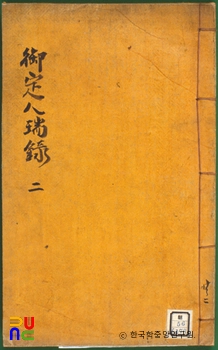 御定人瑞錄
二
© 한국학중앙연구원